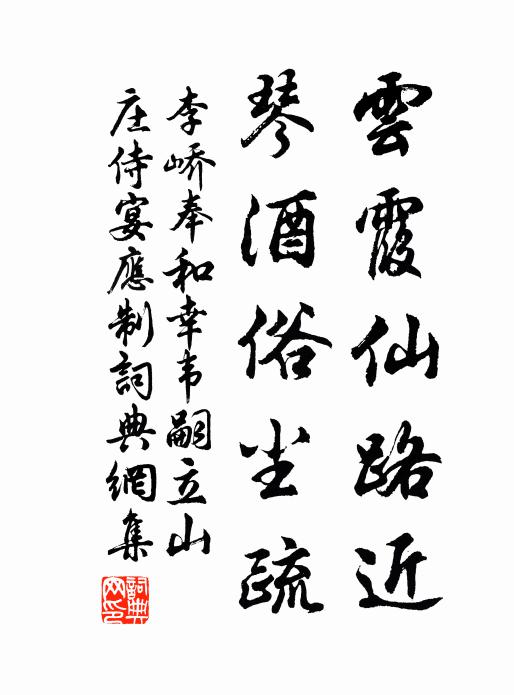 雲霞仙路近
琴酒俗尘疏
李峤奉和幸韦嗣立山
庄侍宴應制詞典網集
詞典網印